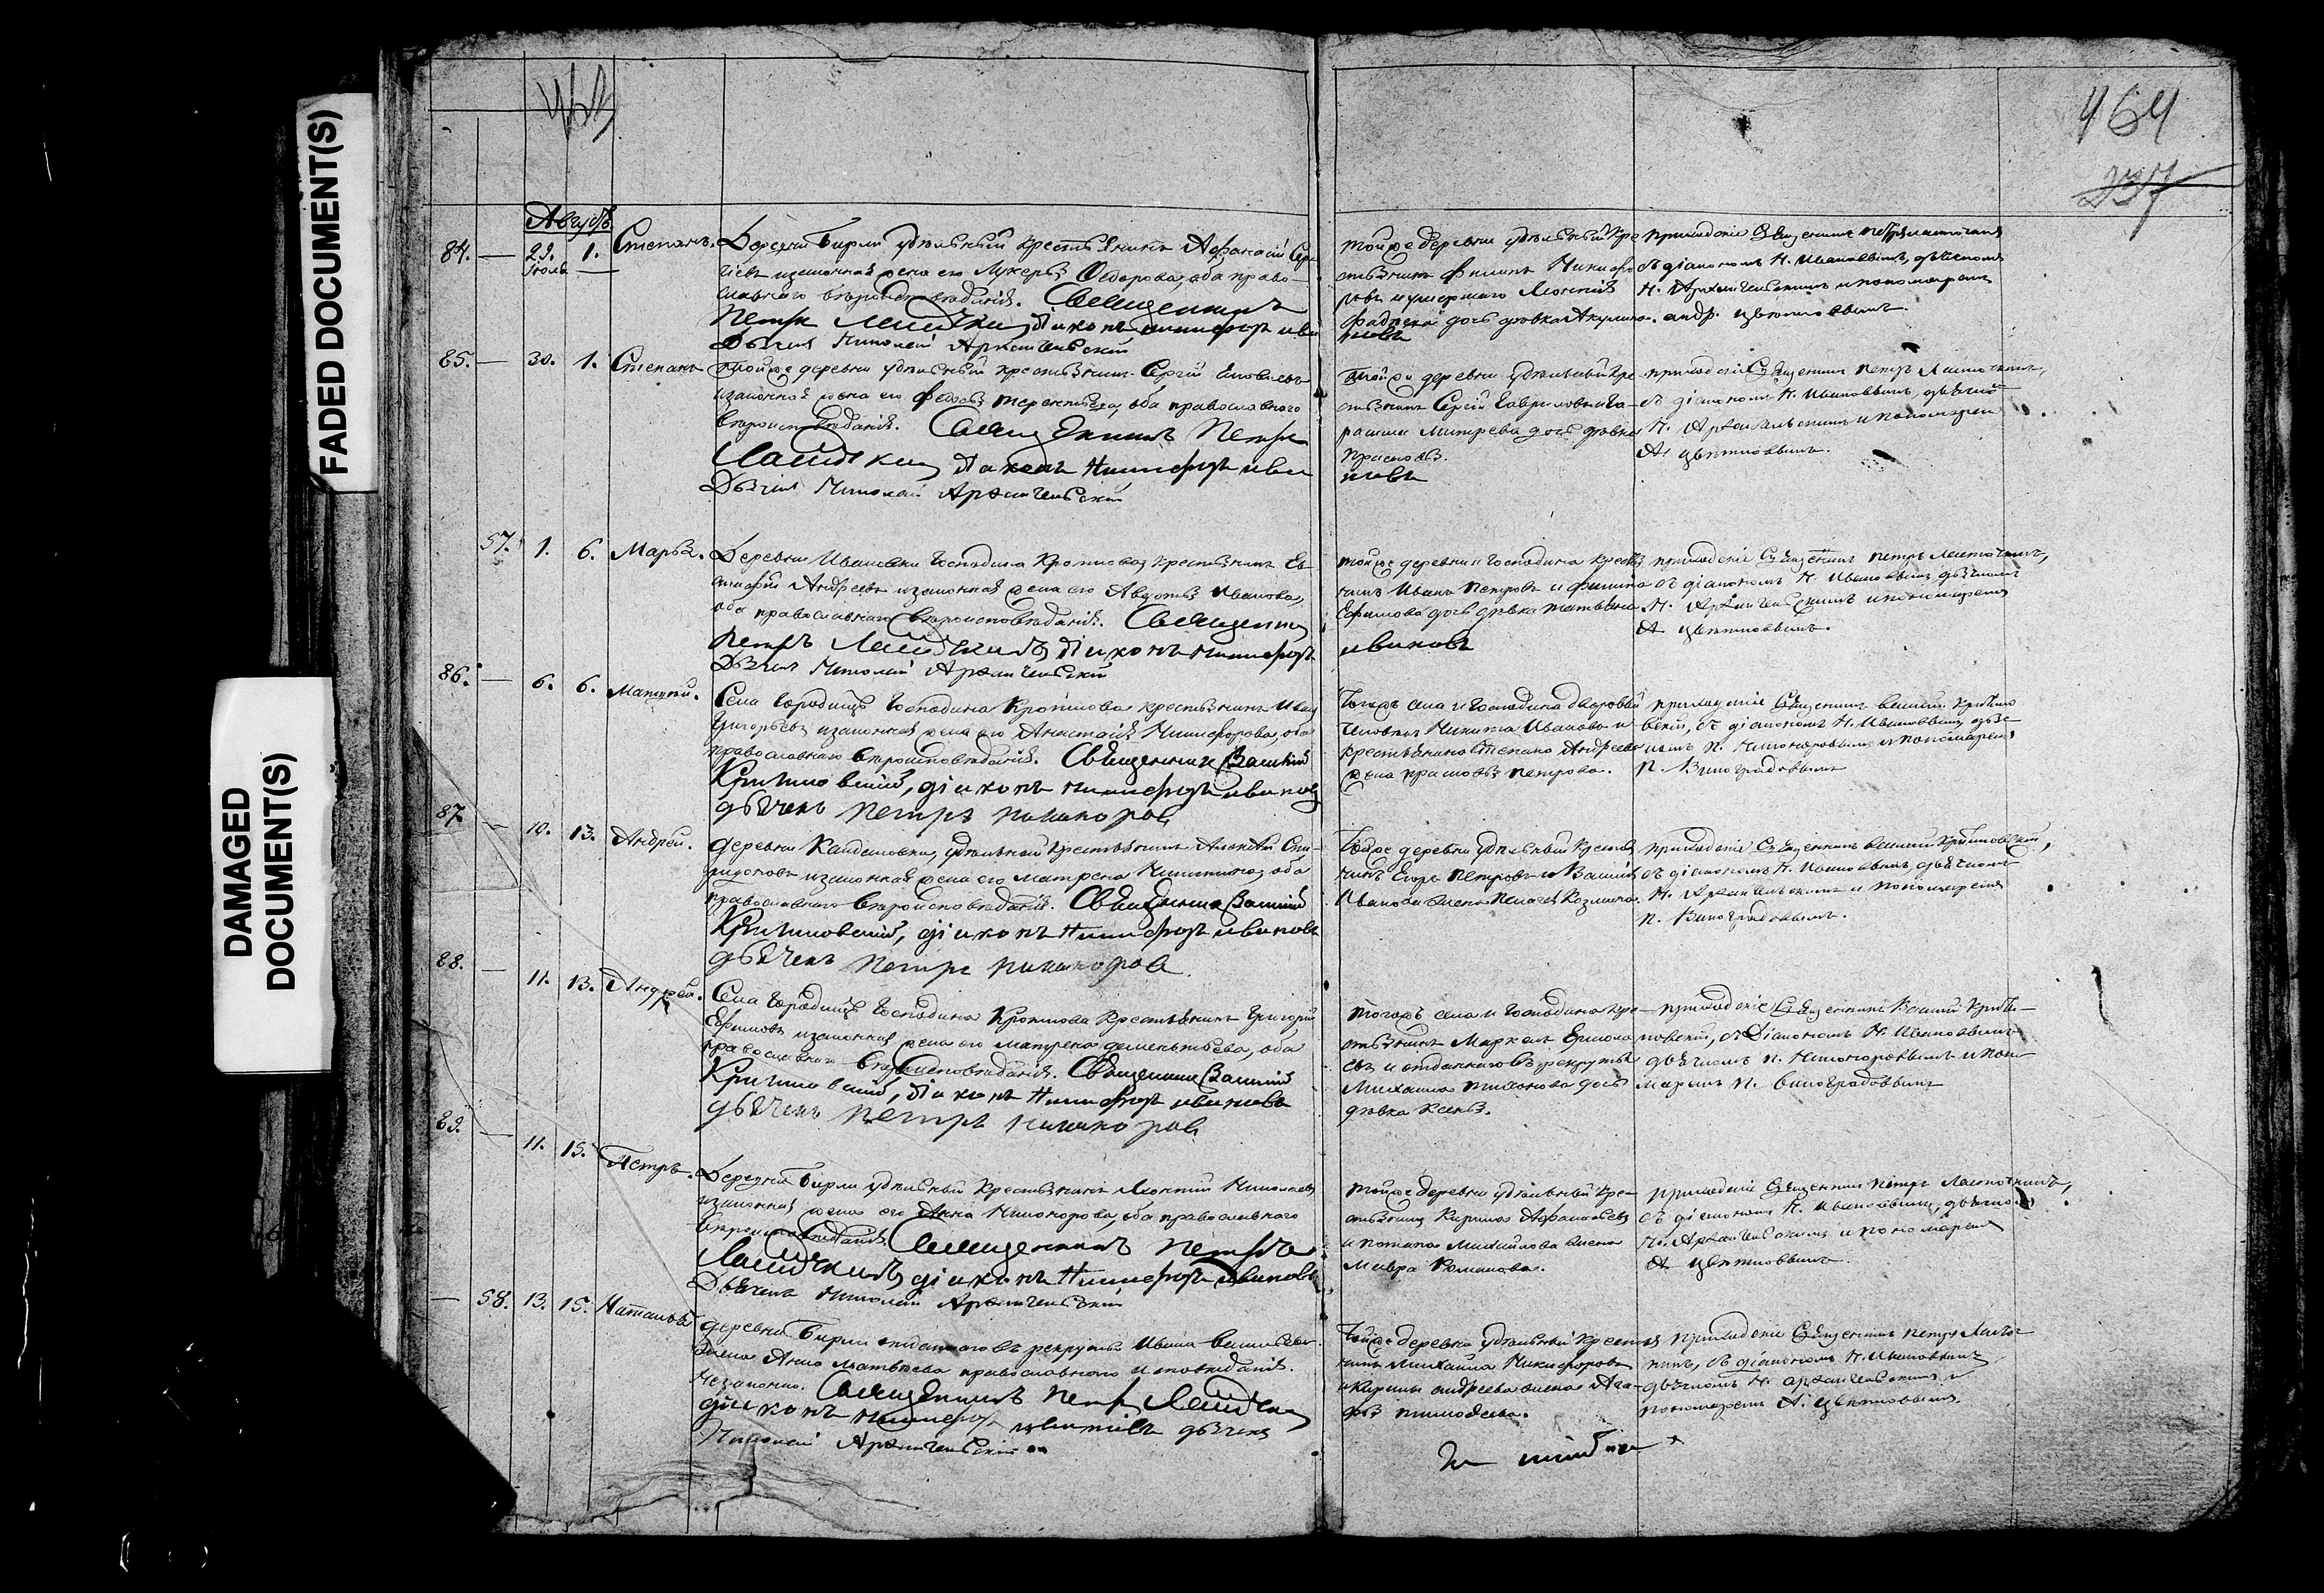 FADED DOCUMENT(S)
DAMAGED
DOCUMENT(S)
464
237
Августъ
84. — 29. 1. Степанъ.
Іюль
Деревни Бирли удѣльный крестьянинъ Афанасій Сер-
гіевъ и законная жена его Лукерья Ѳедорова, оба право-
славнаго вѣроисповѣданія. Священникъ
Петръ Діаконъ Никифоръ
Дьячекъ Николай Архангельскій
тойже деревни удѣльный кре-
стьянинъ Филипъ Никифо-
ровъ и умершаго
дочь дѣвка Акулина.
приходскіе Священникъ Петръ Ласточкинъ
съ діакономъ Н. Ивановымъ, дьячкомъ
Н. Архангельскимъ и пономаремъ
андр. Цвѣтковымъ.
85. — 30. 1. Степанъ
Тойже деревни удѣльный крестьянинъ Сергій
и законная жена его Терентьева, оба православнаго
вѣроисповѣданія. Священникъ Петръ
Діаконъ Никифоръ Ива
новъ
Дьячекъ Николай Архангельскій
Тойже деревни удѣльный кре-
стьянинъ Сергій Гавриловъ и Га-
расима Митрева дочь дѣвка
Прасковья.
приходскіе Священникъ Петръ Ласточкинъ,
съ діакономъ Н. Ивановымъ, дьячкомъ
Н. Архангельскимъ и пономаремъ
А. Цвѣтковымъ.
57. 1. 6. Марья.
Деревни Ивановки Господина крестьянинъ Ев-
Андреевъ и законная жена его Авдотья Иванова,
оба православнаго вѣроисповѣданія. Священникъ
Петръ Діаконъ Никифоръ
Ивановъ
Дьячекъ Николай Архангельскій
тойже деревни и Господина крестья-
нинъ Иванъ Петровъ и Филипа
Ефимова дочь дѣвка Татьяна
приходскіе Священникъ Петръ Ласточкинъ,
съ діакономъ Н. Ивановымъ дьячкомъ
Н. Архангельскимъ и пономаремъ
А. Цвѣтковымъ.
86. — 6. 6. Матвѣй.
Села Городищъ Господина крестьянинъ Иванъ
Григорьевъ и законная жена его Анастасія Никифорова, оба
православнаго вѣроисповѣданія. Священникъ Василій
діаконъ Никифоръ Ивановъ
дьячекъ Петръ Никаноровъ
Тогожъ села и Господина дворовый
человѣкъ Никита Ивановъ и
крестьянина Степана Андреева
жена Прасковья Петрова.
приходскіе Священникъ Василій
съ діакономъ Н. Ивановымъ, дьяч-
комъ П. Никаноровымъ и пономаремъ
П. Виноградовымъ
87. — 10. 13. Андрей.
деревни удѣльный крестьянинъ Алексѣй Спи-
ридоновъ и законная жена его Матрена Никитина, оба
православнаго вѣроисповѣданія. Священникъ Василій
діаконъ Никифоръ Ивановъ
дьячекъ Петръ Никаноровъ
Тойже деревни удѣльный крестья-
нинъ Егоръ Петровъ и Василія
Иванова жена Пелагея Козмина.
приходскіе Священникъ Василій
съ діакономъ Н. Ивановымъ, дьячкомъ
Н. Архангельскимъ и пономаремъ
П. Виноградовымъ.
88. — 11. 13. Андрей.
Села Городищъ Господина крестьянинъ Григорій
Ефимовъ и законная жена его Матрена Дементьева, оба
православнаго вѣроисповѣданія. Священникъ Василій
діаконъ Никифоръ Ивановъ
дьячекъ Петръ Никаноровъ
тогожъ села и Господина кре-
стьянинъ Маркелъ Ермола-
евъ и отданнаго въ рекруты
Михаила Тихонова дочь
дѣвка Ксенья.
приходскіе Священникъ Василій
съ Діакономъ Н. Ивановымъ
дьячкомъ П. Никаноровымъ и поно-
маремъ П. Виноградовымъ
89. — 11. 15. Петръ.
Деревни Бирли удѣльный крестьянинъ Николаевъ
и законная жена его Анна Никонорова, оба православнаго
вѣроисповѣданія. Священникъ Петръ
діаконъ Никифоръ Ивановъ
Дьячекъ Николай Архангельскій
тойже деревни удѣльный кре-
стьянинъ Кирила Афанасьевъ
и Потапа Михайлова жена
Мавра Романова.
приходскіе Священникъ Петръ Ласточкинъ,
съ діакономъ Н. Ивановымъ, дьячкомъ
Н. Архангельскимъ и пономаремъ
А. Цвѣтковымъ.
— 58. 13. 15. Наталья
деревни Бирли отданнаго въ рекруты Ивана Васильева
жена Анна Матвѣева православнаго исповѣданія.
Незаконно. Священникъ Петръ
діаконъ Никифоръ дьячекъ
Николай Архангельскій
Тойже деревни удѣльный крестья-
нинъ Михайла Никифоровъ
и Кирилы Андреева жена Ага-
фья Тимофеева.
приходскіе Священникъ Петръ Ласто-
чкинъ, съ діакономъ Н. Ивановымъ
дьячкомъ Н. Архангельскимъ и
пономаремъ А. Цвѣтковымъ.